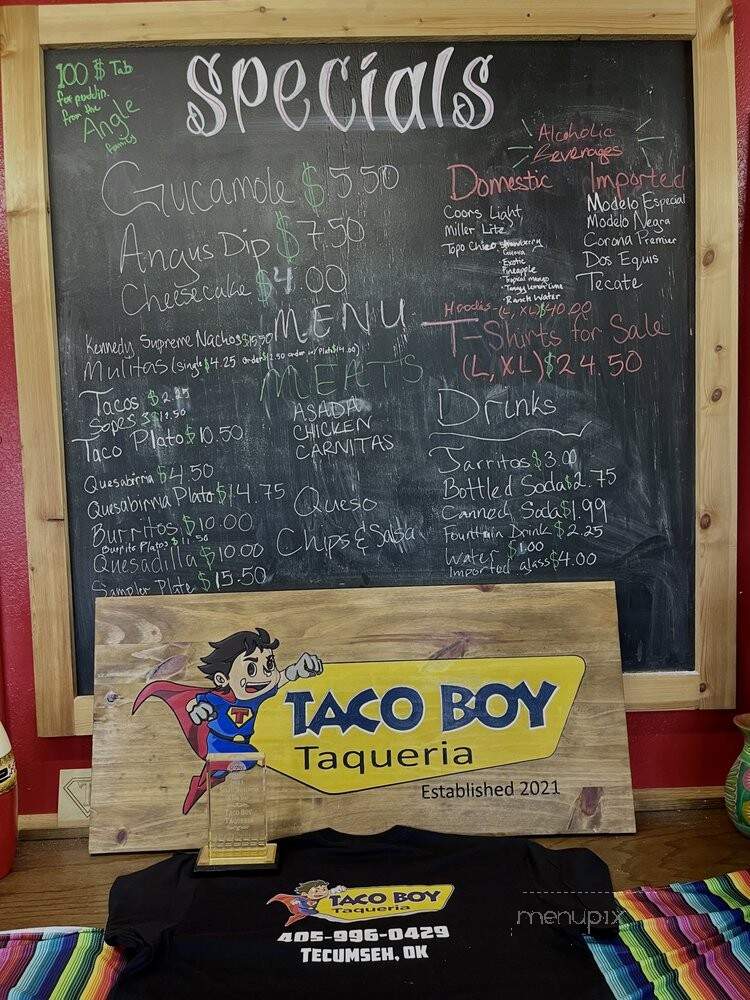 100 $ Tab
for puddin.
from the
Angle
family
Specials
Gucamole $5.50
Angus Dip $7.50
Cheesecake $4.00
Alcoholic
Beverages
Domestic
Coors Light
Miller Lite
Topo Chico strawberry
Guava
Exotic
Pineapple
Tropical mango
Tangy Lemon Lime
Ranch Water
Imported
Modelo Especial
Modelo Negra
Corona Premier
Dos Equis
Tecate
Hoodis-(L, XL)$40.00
T-Shirts for Sale
(L, XL)$24.50
MENU
Kennedy Supreme Nachos $15.50
Mulitas (single $4.25 order $12.50 order w/ Plato $14.00)
Tacos $2.25
Sopes 3 $11.50
Taco Plato $10.50
Quesabirria $4.50
Quesabirria Plato $14.75
Burritos $10.00
Burrito Platos $11.50
Quesadilla $10.00
Sampler Plate $15.50
MEATS
ASADA
CHICKEN
CARNITAS
Queso
Chips & Salsa
Drinks
Jarritos $3.00
Bottled Soda $2.75
Canned Soda $1.99
Fountain Drink $2.25
Water $1.00
Imported glass $4.00
T
TACO BOY
Taqueria
Established 2021
Taco Boy
Taqueria
TACO BOY
Taqueria
405-996-0429
TECUMSEH, OK
menupix